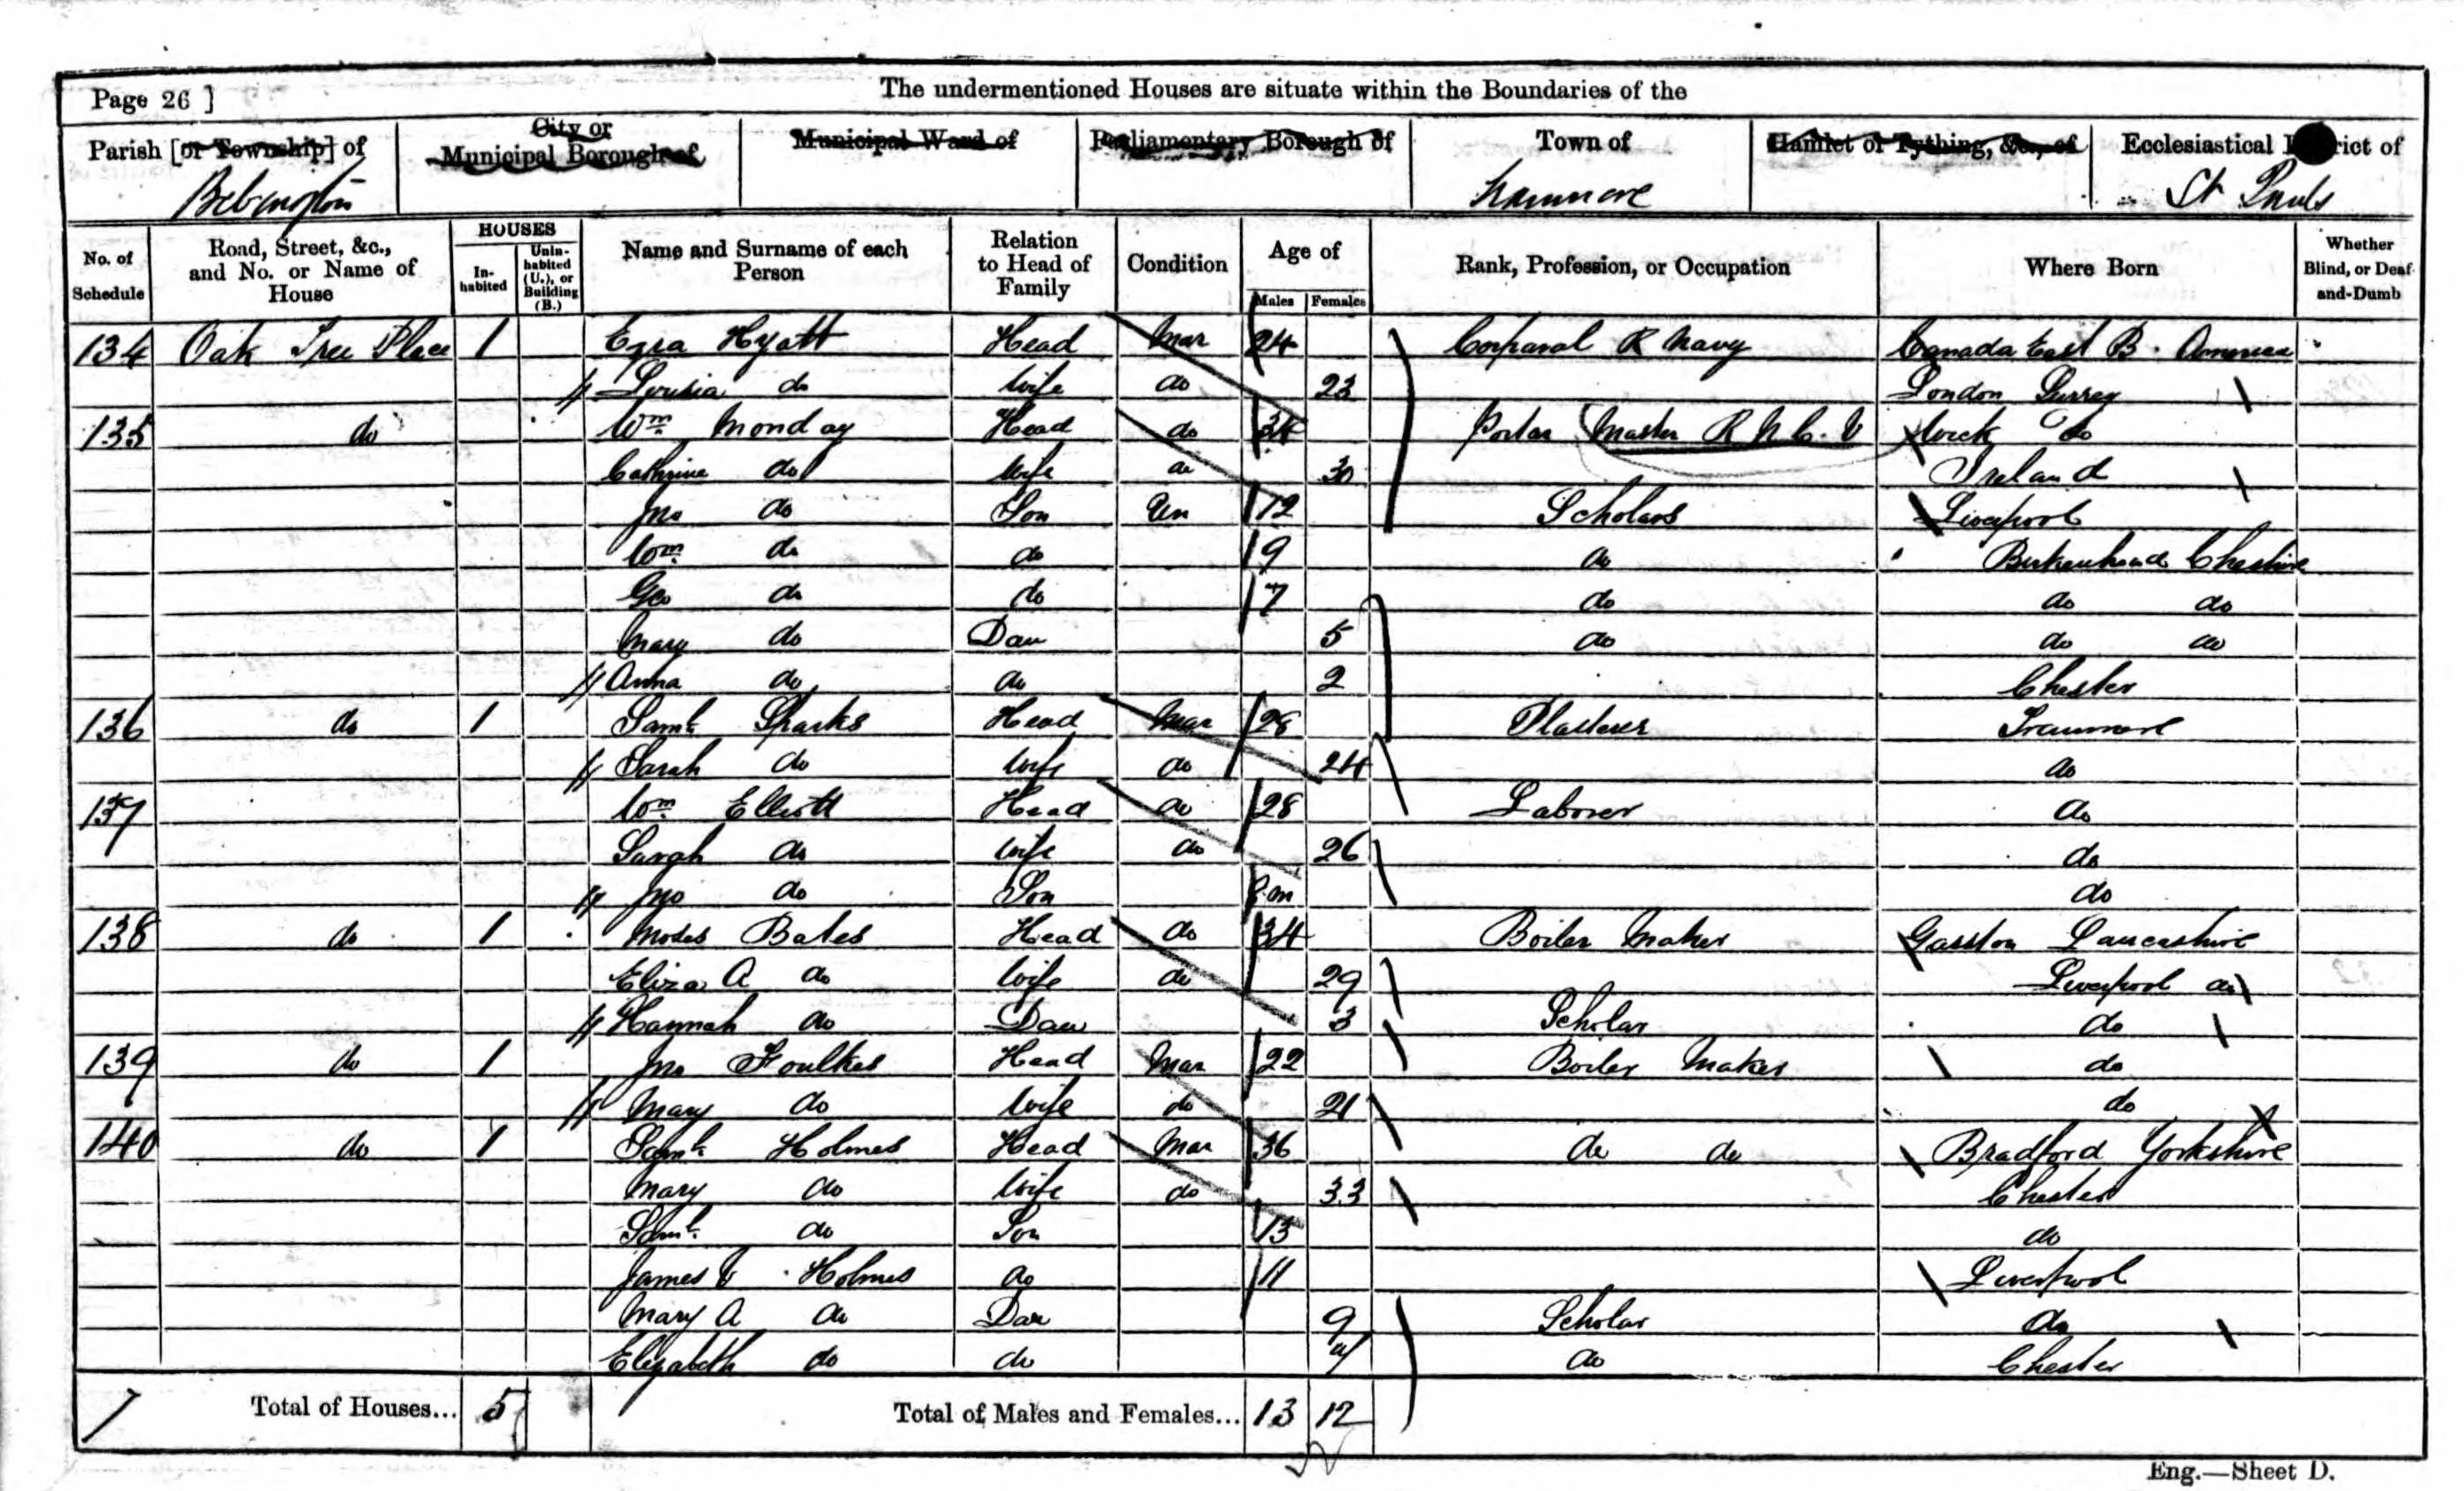 Page 26 ]
The undermentioned Houses are situate within the Boundaries of the
Parish [or Township] of
City or Municipal Borough of
Municipal Ward of
Parliamentary Borough of
Town of
Hamlet or Tything, &c., of
Ecclesiastical District of
Bebington Tranmere St Pauls
No. of Schedule
Road, Street, &c., and No. or Name of House
HOUSES
In-habited
Unin-habited (U.), or Building (B.)
Name and Surname of each Person
Relation to Head of Family
Condition
Age of
Males Females
Rank, Profession, or Occupation
Where Born
Whether Blind, or Deaf-and-Dumb
134 Oak Tree Place 1 Ezra Hyatt Head Mar 24 Corporal R Navy Canada East B. America
Louisia do Wife do 23 London Surrey
135 do Wm Monday Head do 34 Porter Master R N C. V Wick do
Cathrine do Wife do 30 Ireland
Jno do Son Un 12 Scholars Liverpool
Wm do do 9 do Birkenhead Cheshire
Geo do do 7 do do do
Mary do Dau 5 do do do
Anna do do 2 Chester
136 do 1 Saml Sparks Head Mar 28 Plasterer Tranmere
Sarah do Wife do 24 do
137 Wm Elliott Head do 28 Laborer do
Sarah do Wife do 26 do
Jno do Son 8 m do
138 do 1 Moses Bates Head do 34 Boiler Maker Gasston Lancashire
Eliza A do Wife do 29 Liverpool do
Hannah do Dau 3 Scholar do
139 do 1 Jno Foulkes Head Mar 22 Boiler Maker do
Mary do Wife do 21 do
140 do 1 Saml Holmes Head Mar 36 do do Bradford Yorkshire
Mary do Wife do 33 Chester
Saml do Son 13 do
James Holmes do 11 Liverpool
Mary A do Dau 9 Scholar do
Elizabeth do do do Chester
Total of Houses... 5 Total of Males and Females... 13 12
Eng.—Sheet D.